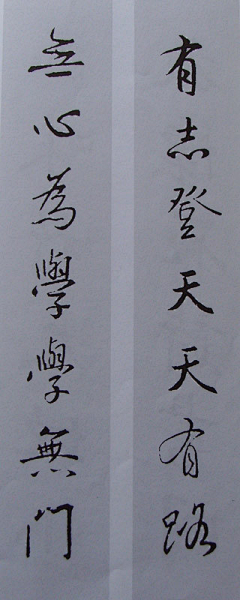 有志登天天有路
無心為學學無門